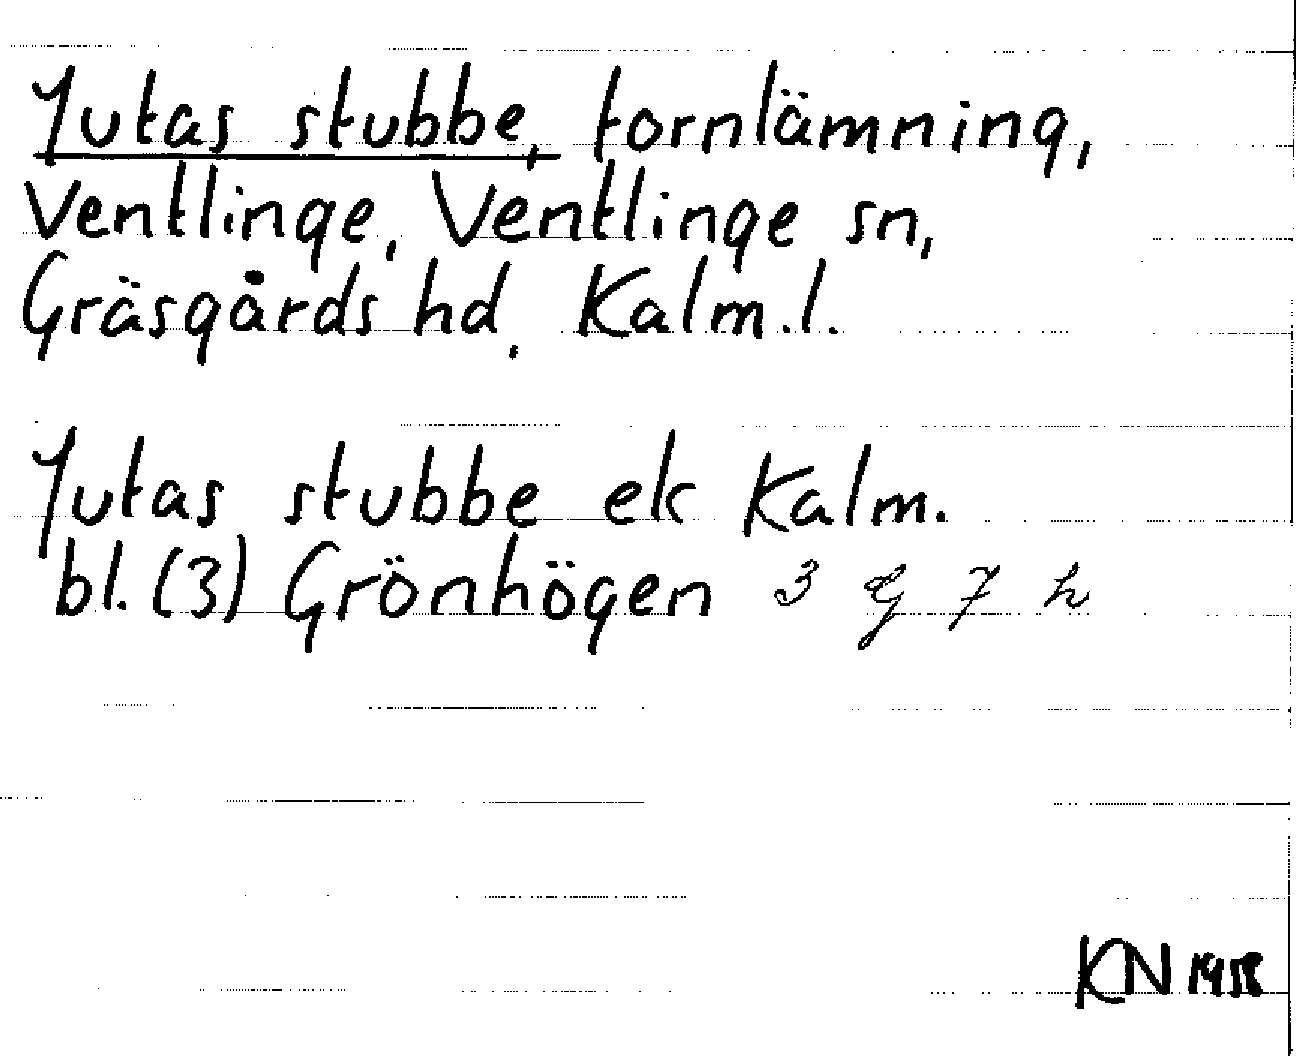 Jutas stubbe, fornlämning,
Ventlinge, Ventlinge sn,
Gräsgårds hd, Kalm.l.
Jutas stubbe ek Kalm.
bl. (3) Grönhögen 3 G 7 h
KN 1958